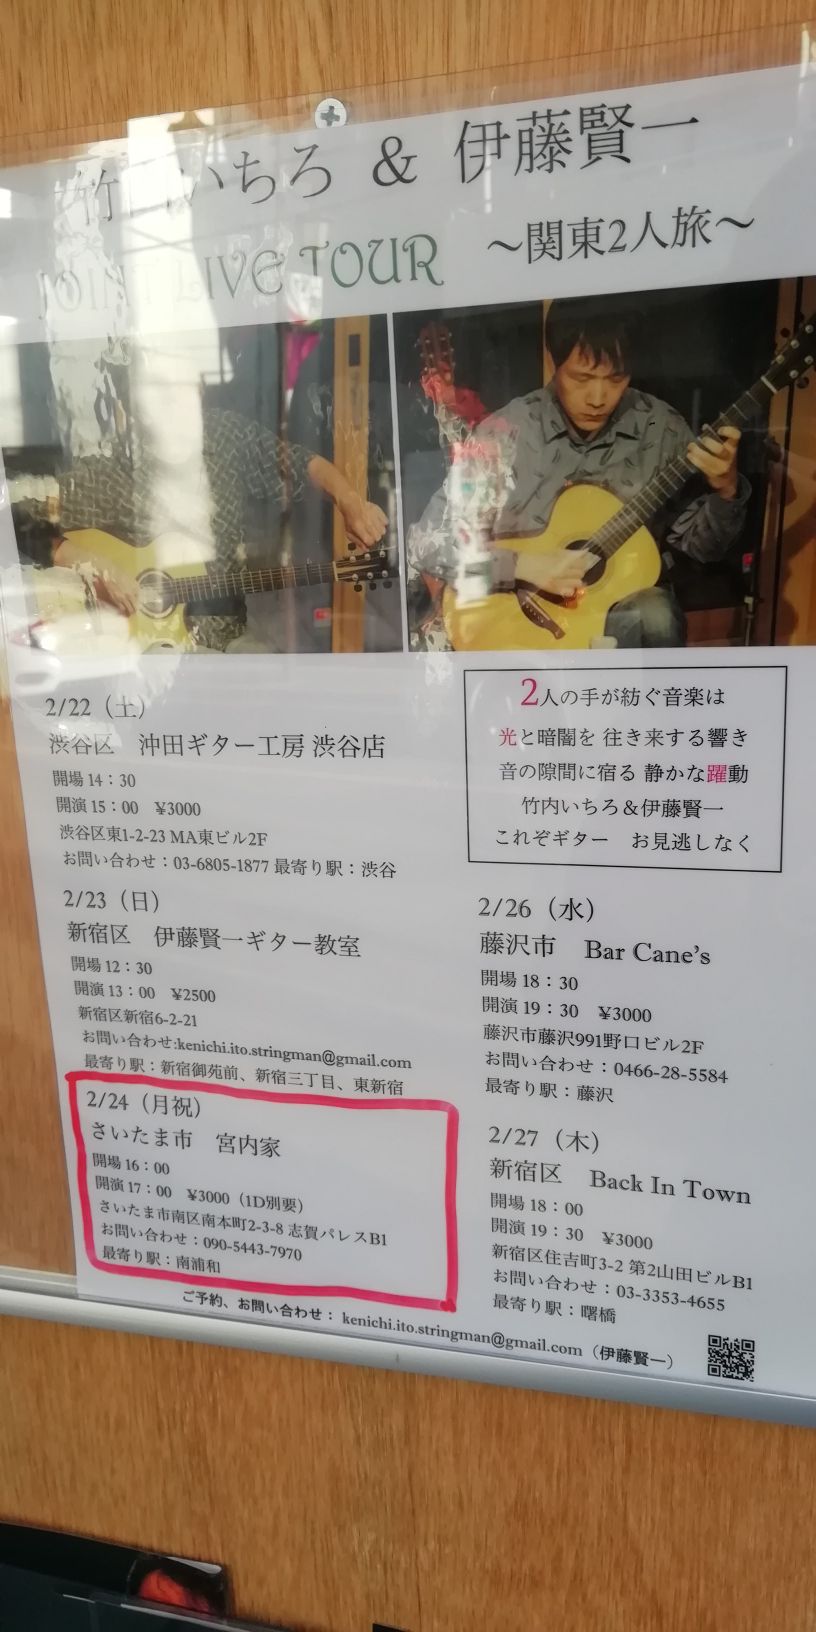 竹内いちろ & 伊藤賢一
JOINT LIVE TOUR 〜関東2人旅〜
2/22（土）
渋谷区 沖田ギター工房 渋谷店
開場14：30
開演15：00 ¥3000
渋谷区東1-2-23 MA東ビル2F
お問い合わせ：03-6805-1877 最寄り駅：渋谷
2/23（日）
新宿区 伊藤賢一ギター教室
開場12：30
開演13：00 ¥2500
新宿区新宿6-2-21
お問い合わせ:kenichi.ito.stringman@gmail.com
最寄り駅：新宿御苑前、新宿三丁目、東新宿
2/24（月祝）
さいたま市 宮内家
開場16：00
開演17：00 ¥3000（1D別要）
さいたま市南区南本町2-3-8 志賀パレスB1
お問い合わせ：090-5443-7970
最寄り駅：南浦和
2人の手が紡ぐ音楽は
光と暗闇を 往き来する響き
音の隙間に宿る 静かな躍動
竹内いちろ＆伊藤賢一
これぞギター お見逃しなく
2/26（水）
藤沢市 Bar Cane's
開場18：30
開演19：30 ¥3000
藤沢市藤沢991野口ビル2F
お問い合わせ：0466-28-5584
最寄り駅：藤沢
2/27（木）
新宿区 Back In Town
開場18：00
開演19：30 ¥3000
新宿区住吉町3-2 第2山田ビルB1
お問い合わせ：03-3353-4655
最寄り駅：曙橋
ご予約、お問い合わせ： kenichi.ito.stringman@gmail.com（伊藤賢一）